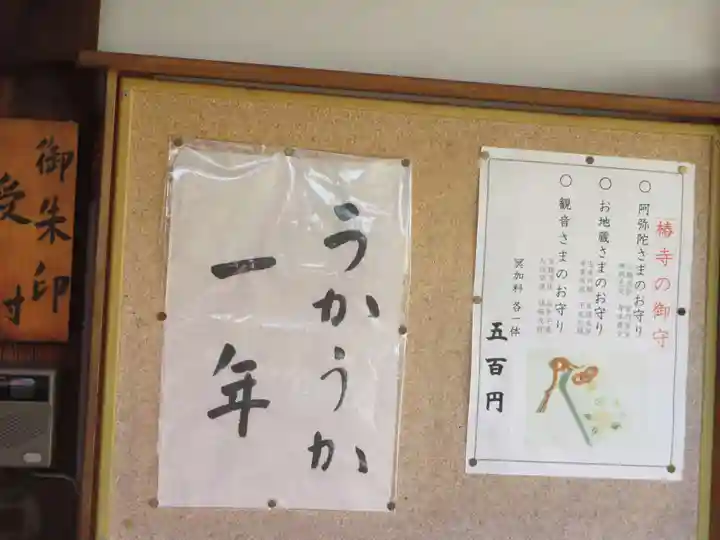 御朱印
受付
うかうか
一年
椿寺の御守
○阿弥陀さまのお守り
○お地蔵さまのお守り
○観音さまのお守り
冥加料 各一体
五百円